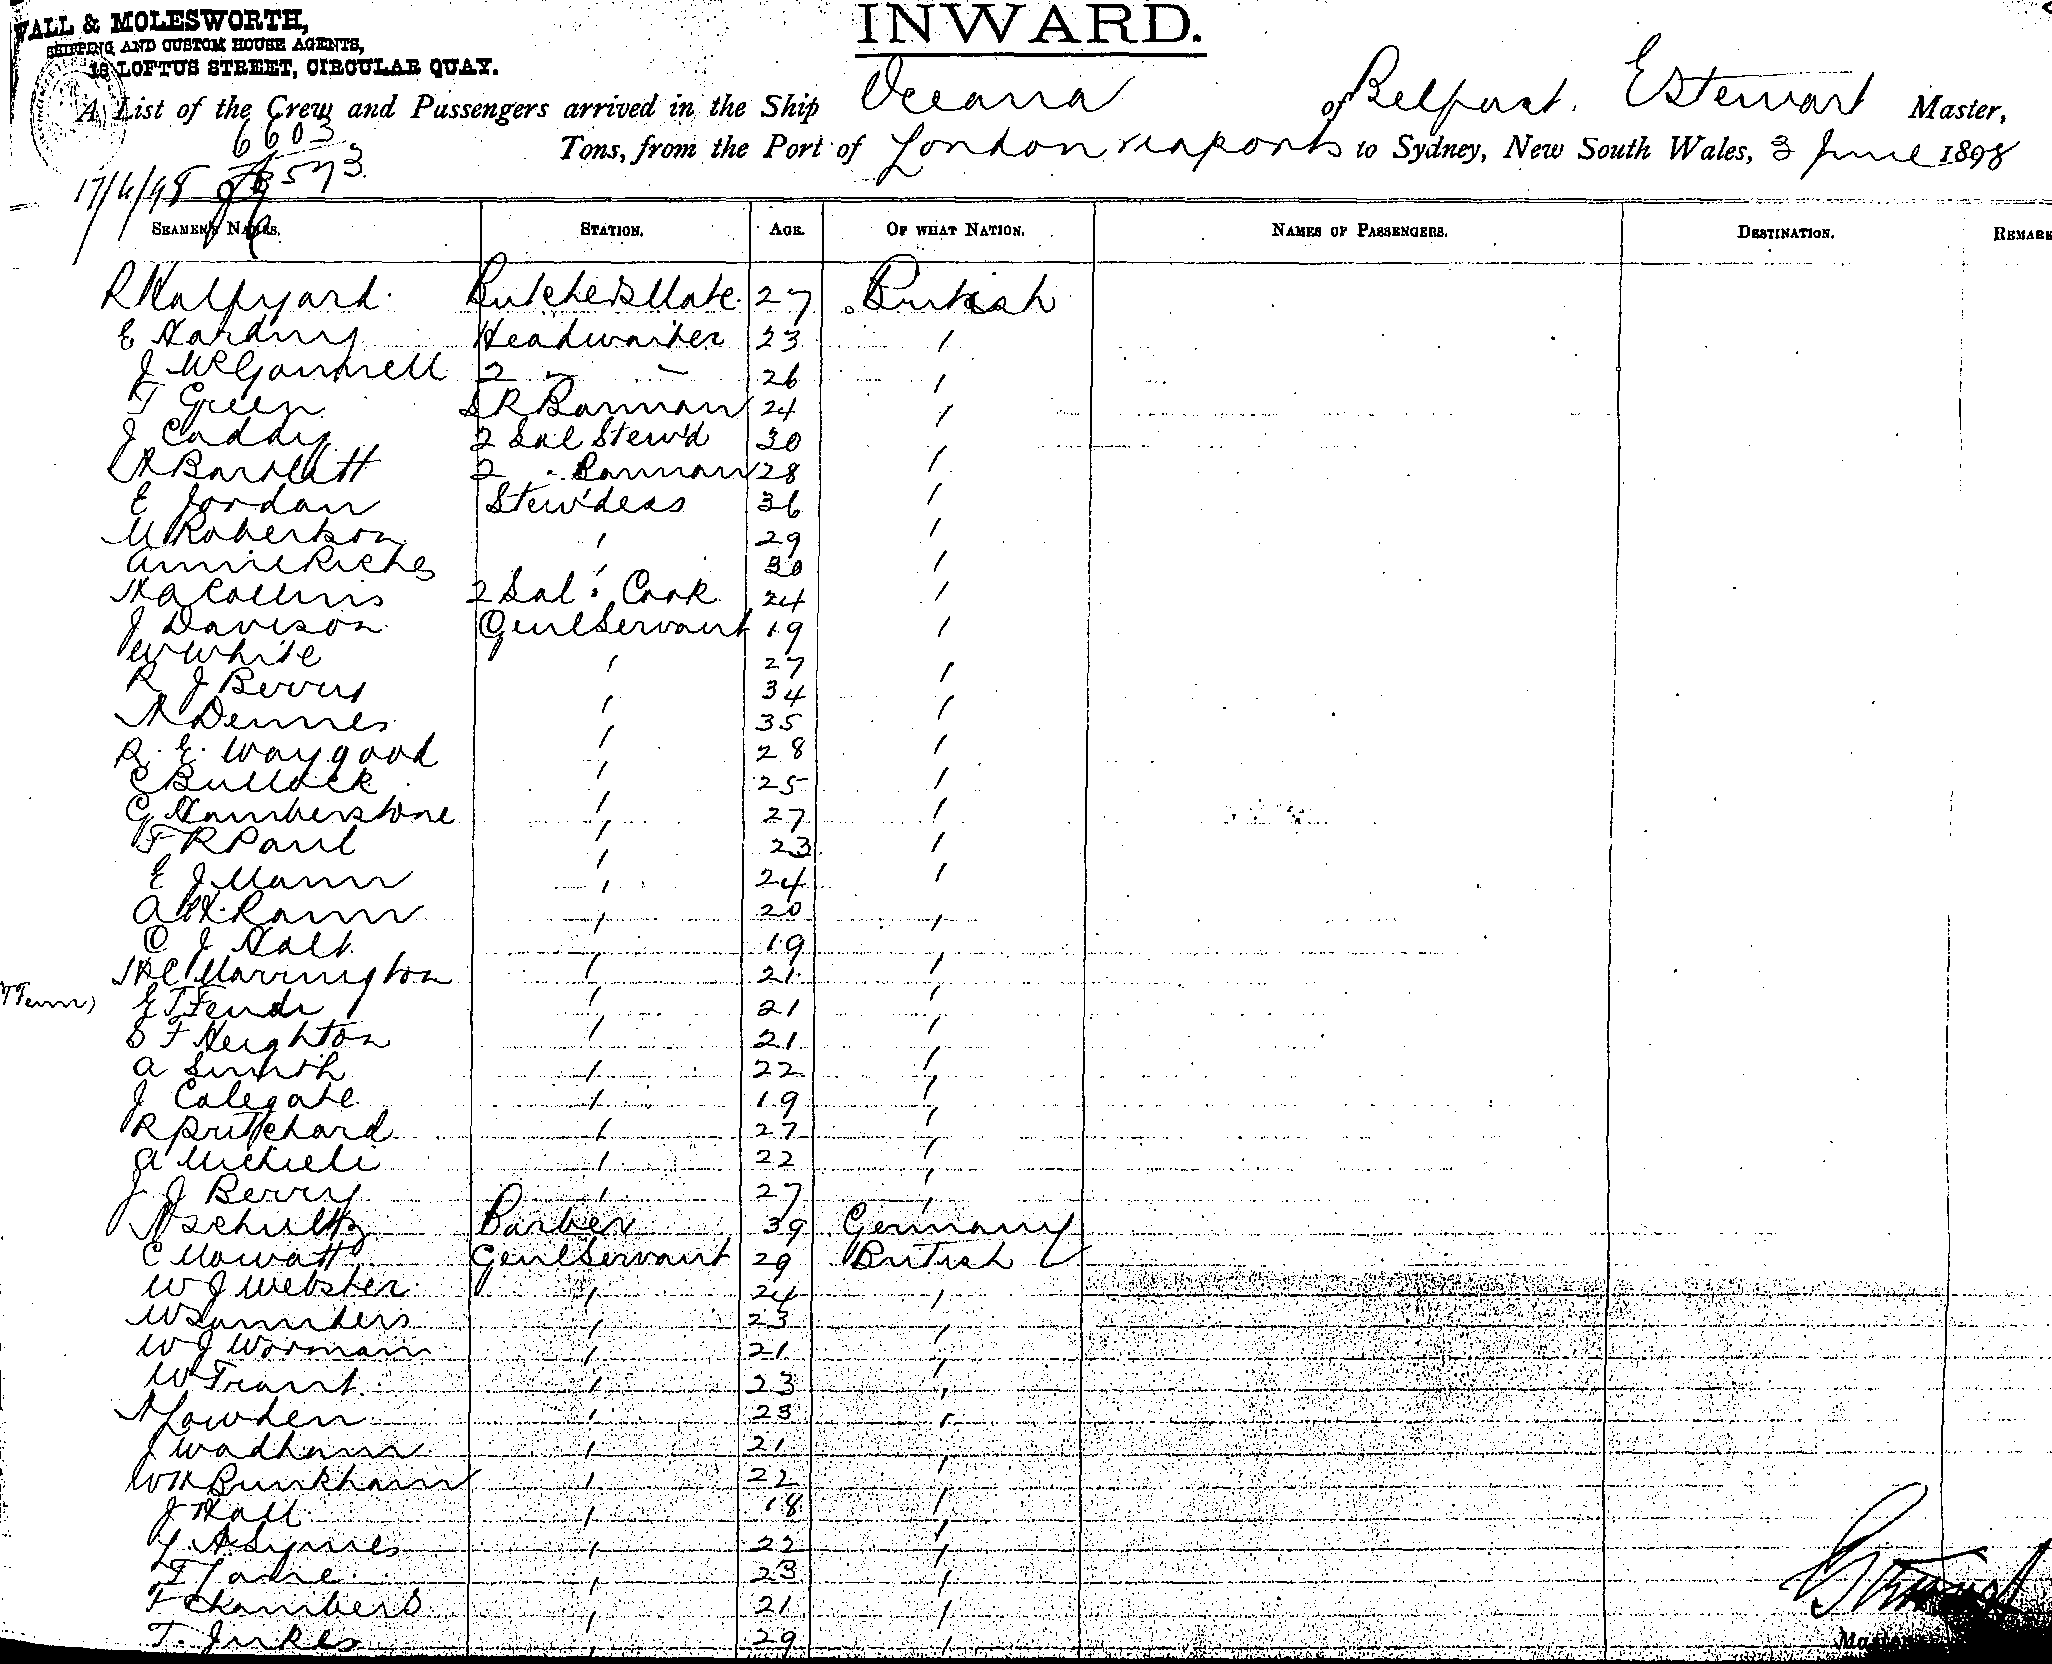 WALL & MOLESWORTH,
SHIPPING AND CUSTOM HOUSE AGENTS,
18 LOFTUS STREET, CIRCULAR QUAY.
INWARD.
A List of the Crew and Passengers arrived in the Ship Oceana of Belfast. E Stewart Master,
6603
Tons, from the Port of London via ports to Sydney, New South Wales, 3 June 1898
3573
17/6/98
SEAMEN'S NAMES. STATION. AGE. OF WHAT NATION. NAMES OF PASSENGERS. DESTINATION. REMARK
R Halfyard Butchers Mate 27 British
E Harding Headwaiter 23 "
J McGonnell 2 " " 26 "
T Green S R Barman 24 "
J Caddy 2 Sal Stew'd 30 "
H Bartlett 2 " Barman 28 "
E Jordan Stew'dess 36 "
M Robertson " 29 "
Annie Riches " 30 "
H A Collins 2 Sal : Cook 24 "
J Davison Genl Servant 19 "
W White " 27 "
R J Berry " 34 "
H Dennes " 35 "
R. E. Waygood " 28 "
C Bullock " 25 "
G Hamberstone " 27 "
F R Paul " 23 "
E J Mann " 24 "
A H Rann " 20 "
C J Halt " 19 "
H C Marrington " 21 "
E T Fende " 21 "
S F Heighton " 21 "
A Smith " 22 "
J Calegate " 19 "
R Pritchard " 27 "
A Michieli " 22 "
J J Berry " 27 "
H Schultz Barber 39 Germany
C Mowatt Genl Servant 29 British
W J Webster " 24 "
W Saunders " 23 "
W J Wormain " 21 "
W Trant " 23 "
H Lowden " 23 "
J Wadham " 21 "
W H Bunkham " 22 "
J Hall " 18 "
L A Symes " 22 "
F Lane " 23 "
F Chambers " 21 "
T. Jukes " 29 "
Master